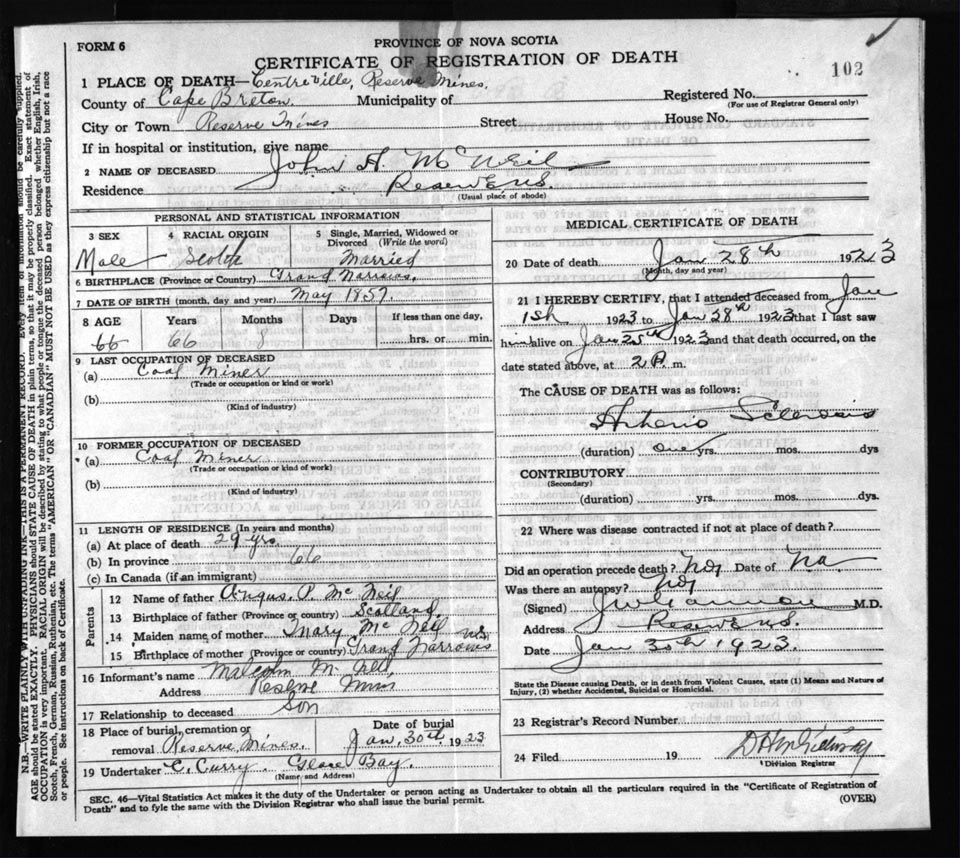 FORM 6
PROVINCE OF NOVA SCOTIA
CERTIFICATE OF REGISTRATION OF DEATH
102
1 PLACE OF DEATH—Centreville, Reserve Mines.
County of Cape Breton. Municipality of
Registered No.
(For use of Registrar General only)
City or Town Reserve Mines Street House No.
If in hospital or institution, give name
2 NAME OF DECEASED John A. McNeil
Residence Reserve N.S.
(Usual place of abode)
PERSONAL AND STATISTICAL INFORMATION
3 SEX
Male
4 RACIAL ORIGIN
Scotch
5 Single, Married, Widowed or Divorced (Write the word)
Married
6 BIRTHPLACE (Province or Country) Grand Narrows.
7 DATE OF BIRTH (month, day and year) May 1857.
8 AGE Years Months Days If less than one day,
66 66 hrs. or min.
9 LAST OCCUPATION OF DECEASED
(a) Coal Miner
(Trade or occupation or kind or work)
(b)
(Kind of industry)
10 FORMER OCCUPATION OF DECEASED
(a) Coal Miner
(Trade or occupation or kind or work)
(b)
(Kind of industry)
11 LENGTH OF RESIDENCE (In years and months)
(a) At place of death 29 yrs.
(b) In province 66
(c) In Canada (if an immigrant)
Parents
12 Name of father Angus. P. McNeil
13 Birthplace of father (Province or country) Scotland
14 Maiden name of mother Mary McNeil
15 Birthplace of mother (Province or country) Grand Narrows NS
16 Informant's name Malcolm McNeil
Address Reserve Mines
17 Relationship to deceased Son
18 Place of burial, cremation or removal Reserve Mines.
Date of burial
Jan. 30th 1923
19 Undertaker C. Curry. Glace Bay.
(Name and Address)
MEDICAL CERTIFICATE OF DEATH
20 Date of death Jan 28th 1923
(Month, day and year)
21 I HEREBY CERTIFY, that I attended deceased from Jan
1st 1923 to Jan 28th 1923 that I last saw
him alive on Jan 25th 1923 and that death occurred, on the
date stated above, at 2 A. m.
The CAUSE OF DEATH was as follows:
Arterio Sclerosis
(duration) one yrs. mos. dys
CONTRIBUTORY
(Secondary)
(duration) yrs. mos. dys.
22 Where was disease contracted if not at place of death?
Did an operation precede death? No Date of Na
Was there an autopsy? No
(Signed) M.D.
Address Reserve N.S.
Date Jan 30th 1923.
State the Disease causing Death, or in death from Violent Causes, state (1) Means and Nature of
Injury, (2) whether Accidental, Suicidal or Homicidal.
23 Registrar's Record Number
24 Filed 19
Division Registrar
SEC. 46—Vital Statistics Act makes it the duty of the Undertaker or person acting as Undertaker to obtain all the particulars required in the "Certificate of Registration of
Death" and to fyle the same with the Division Registrar who shall issue the burial permit.
(OVER)
N.B.—WRITE PLAINLY WITH UNFADING INK—THIS IS A PERMANENT RECORD. Every item of information should be carefully supplied.
AGE should be stated EXACTLY. PHYSICIANS should STATE CAUSE OF DEATH in plain terms, so that it may be properly classified. Exact statement of
OCCUPATION is very important. RACIAL ORIGIN will be described by stating to what people or tongue the deceased person belonged whether English, Irish,
Scotch, French, German, Russian, Ruthenian, etc. The terms "AMERICAN" OR "CANADIAN" MUST NOT BE USED as they express citizenship but not a race
or people. See instructions on back of Certificate.